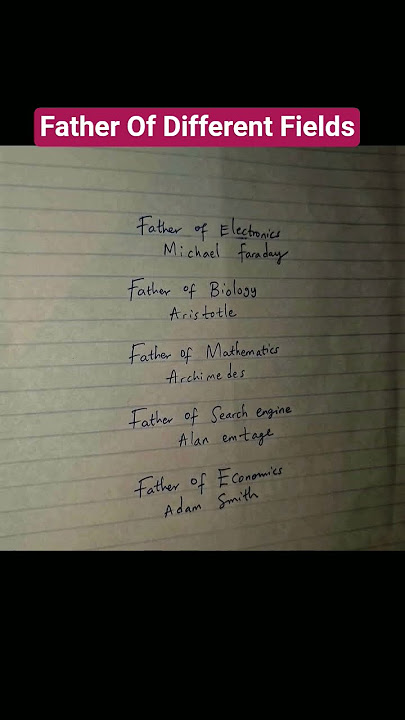 Father Of Different Fields
Father of Electronics
Michael faraday
Father of Biology
Aristotle
Father of Mathematics
Archimedes
Father of Search engine
Alan emtage
Father of Economics
Adam Smith